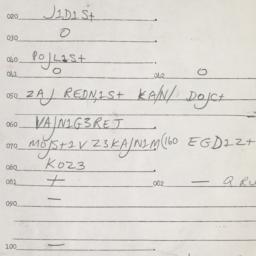 020 J1D1S+
030 O
040 POJL1S+
041 O 042 O
050 ZAJ REDN,1S+ KA/N/ DOJC+
060 VAJN1G3RET
070 MOJS+1V Z3KAJN1M(160 EGD1Z+
080 KOZ3
081 + 082 —
090 —
100 —